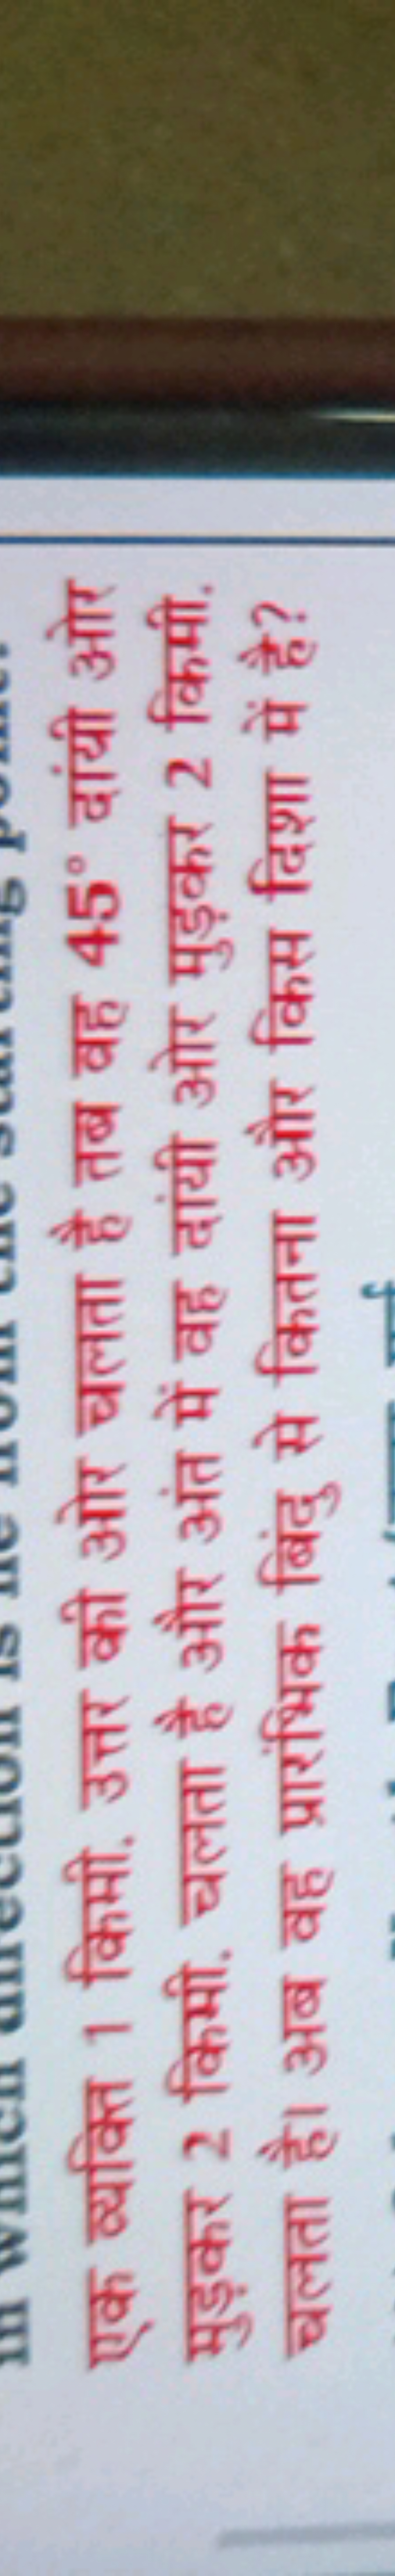 in which direction is he from the starting point.
एक व्यक्ति 1 किमी. उत्तर की ओर चलता है तब वह 45° दांयी ओर
मुड़कर 2 किमी. चलता है और अंत में वह दांयी ओर मुड़कर 2 किमी.
चलता है। अब वह प्रारंभिक बिंदु से कितना और किस दिशा में है?